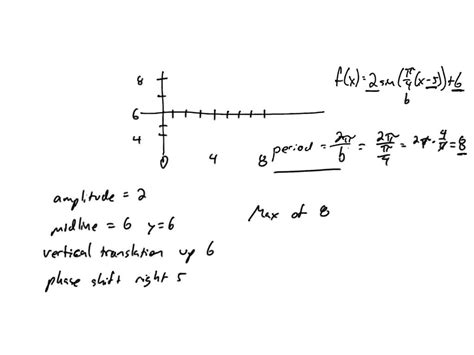 f(x) = 2 sin(π/4(x-5))+6
b
8
6
4
0 4 8
period = 2π/b = 2π/(π/4) = 2π · 4/π = 8
amplitude = 2
midline = 6 y=6
vertical translation up 6
phase shift right 5
Max of 8